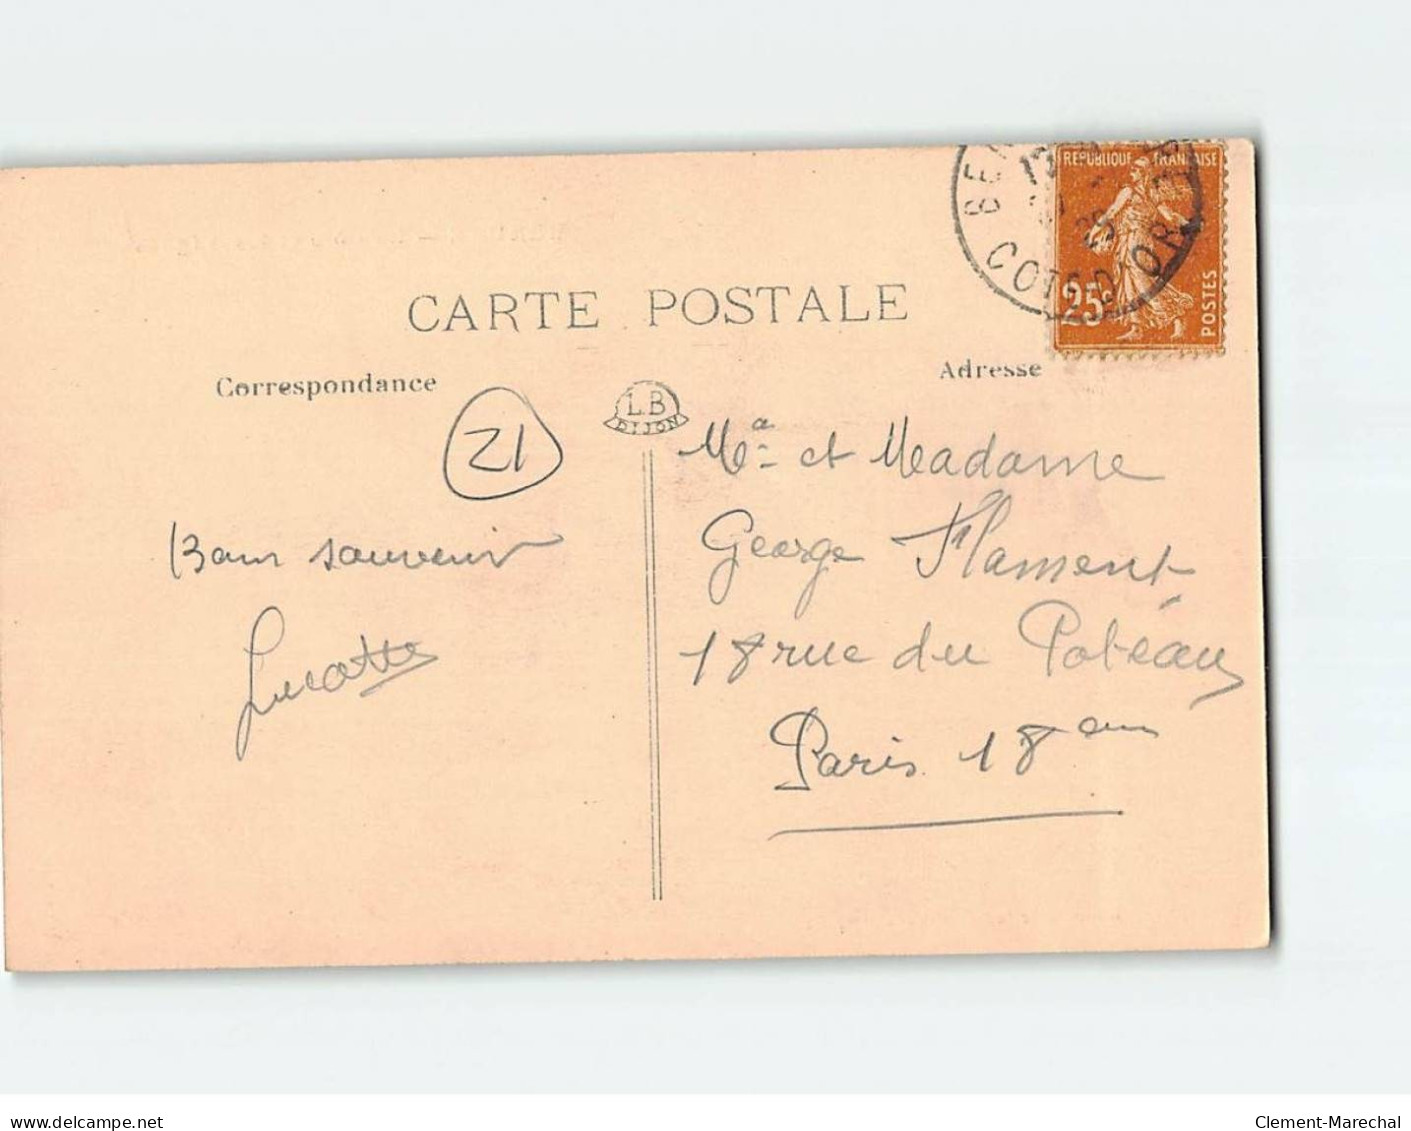 RÉPUBLIQUE FRANÇAISE
COTE D'OR
25c
POSTES
CARTE POSTALE
Correspondance
Adresse
L.B
DIJON
21
Mr et Madame
George Flament
18 rue du Poteau
Paris 18em
Bon souvenir
Lucotte
delcampe.net
Clement-Marechal